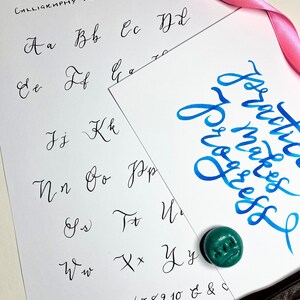 CALLIGRAPHY
Aa Bb Cc Dd
Ee Ff Gg
Jj Kk
Nn Oo Pp
Ss Tt U
Ww Xx Yy
8 9 10 &
Practice
makes
Progress